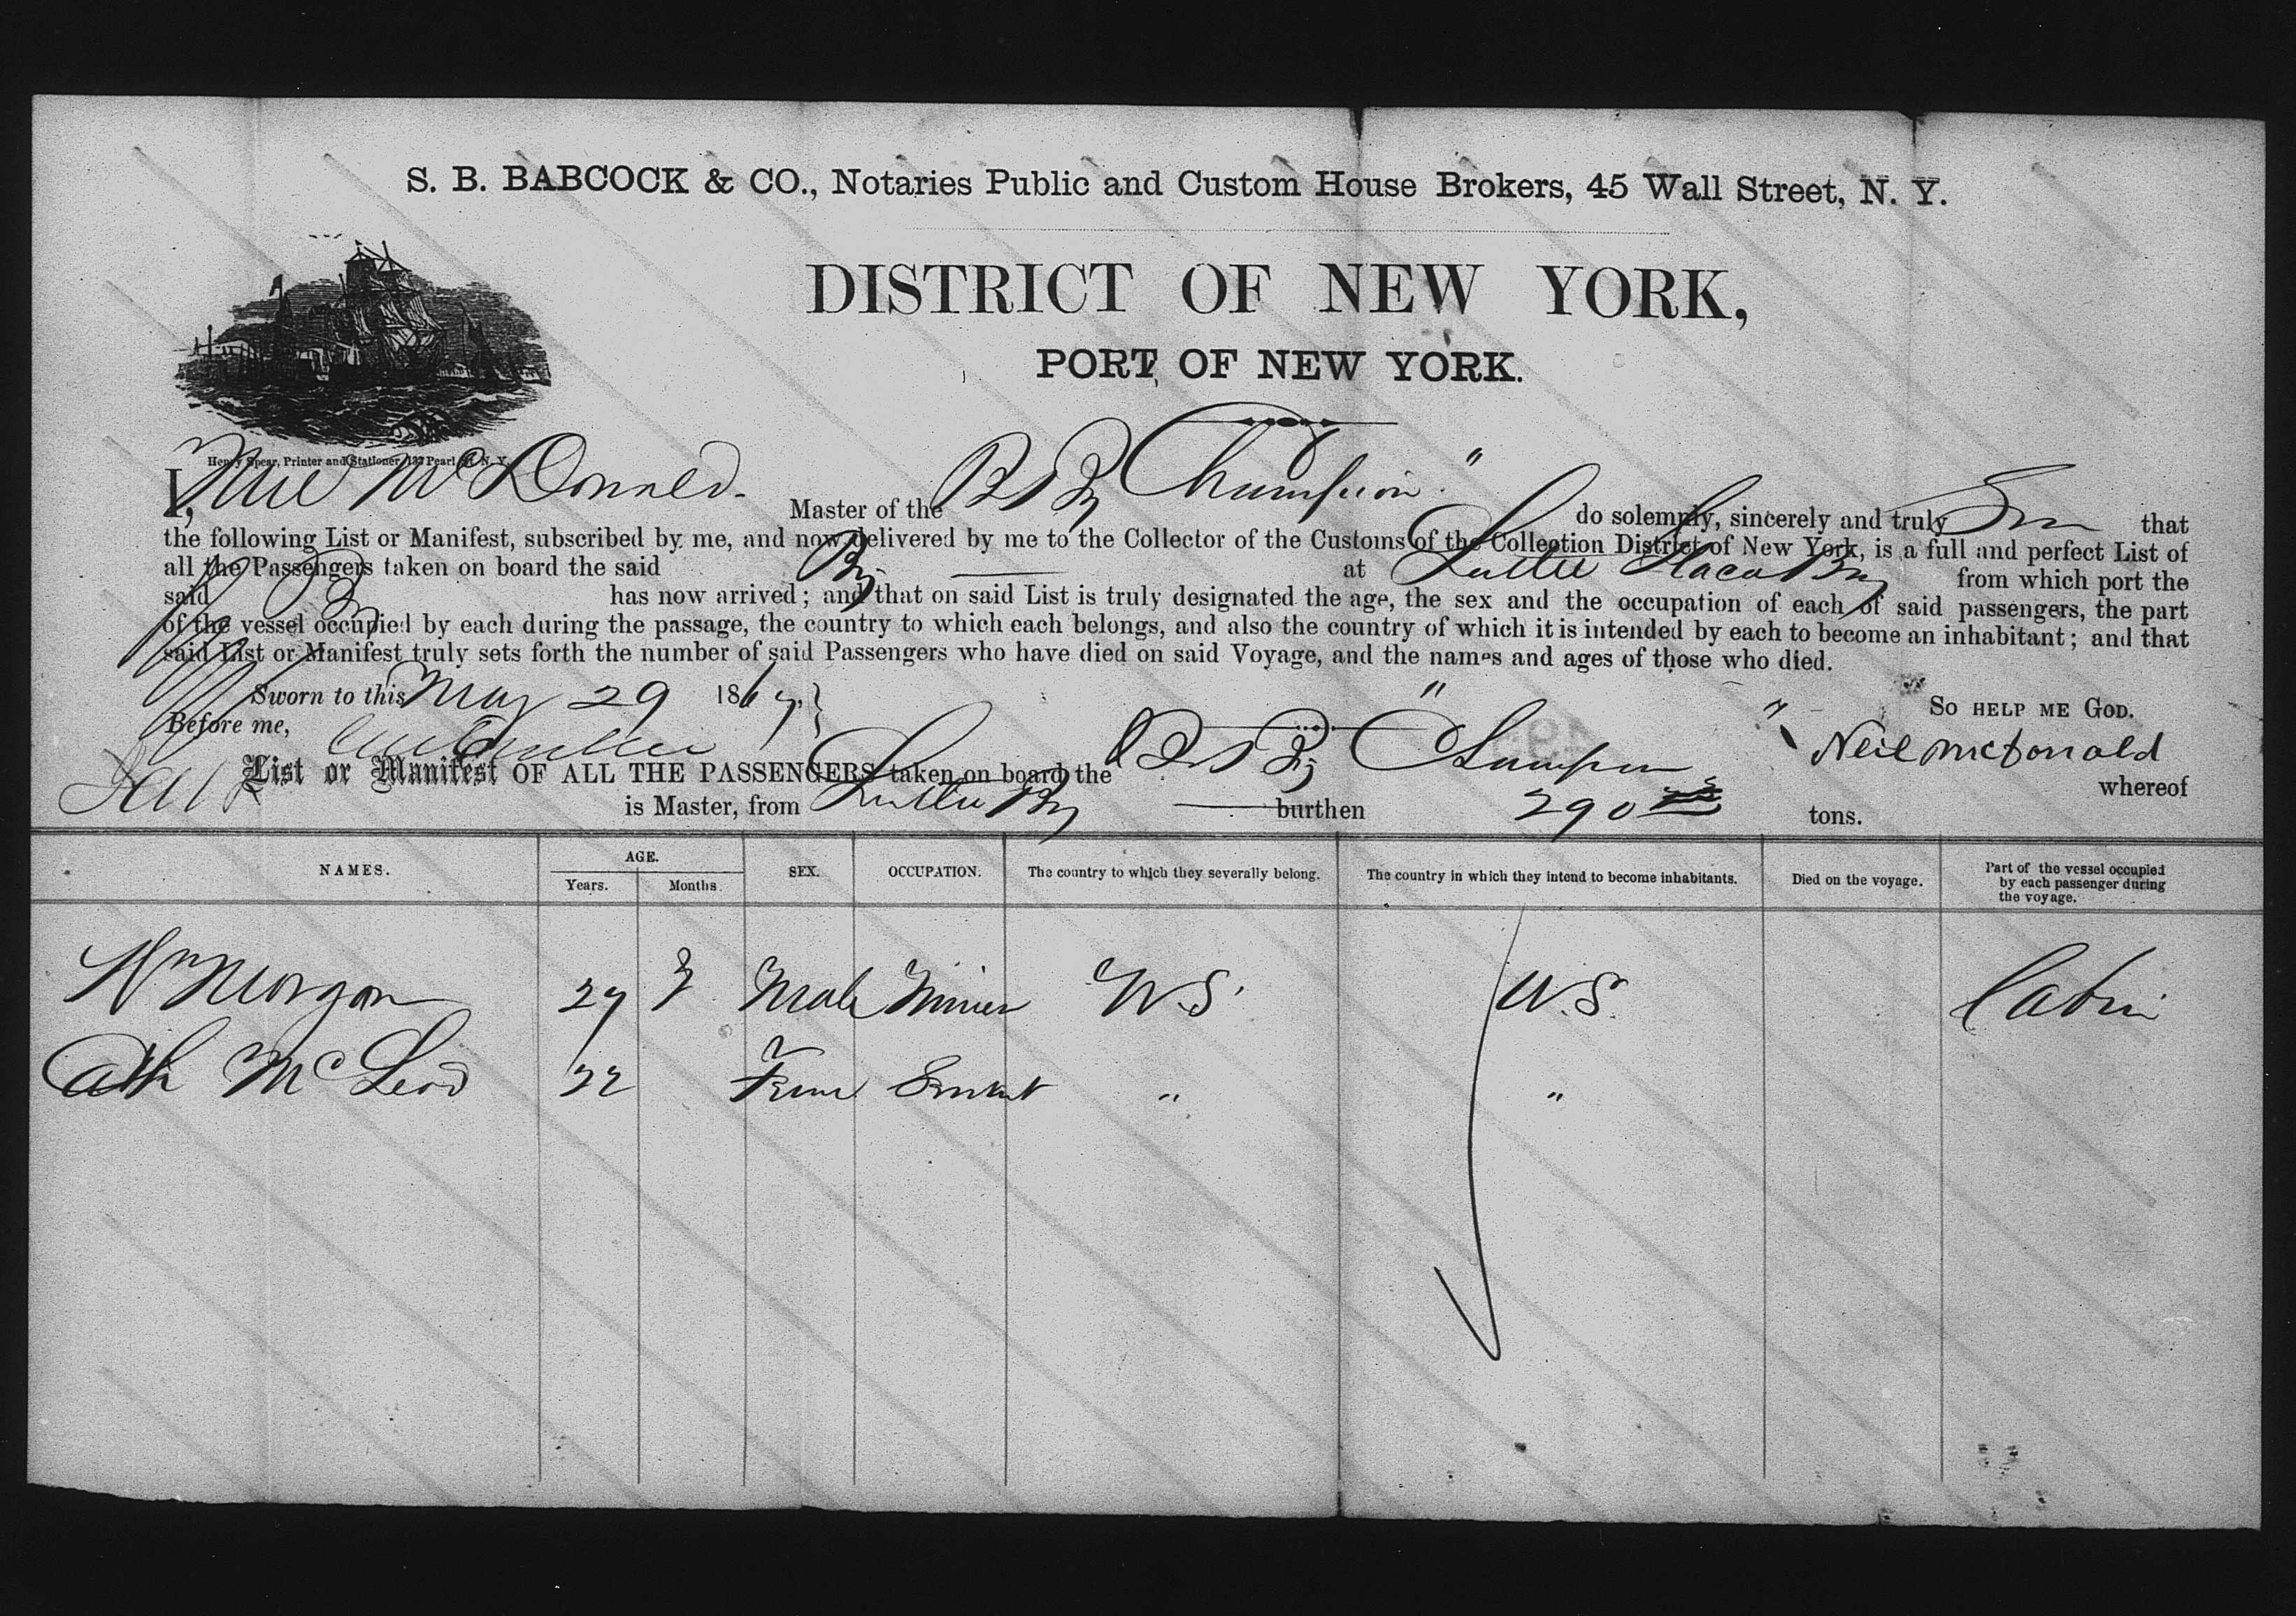 S. B. BABCOCK & CO., Notaries Public and Custom House Brokers, 45 Wall Street, N. Y.
DISTRICT OF NEW YORK,
PORT OF NEW YORK.
Henry Spear, Printer and Stationer, 137 Pearl St. N. Y.
I, Neil McDonald Master of the Champion" do solemnly, sincerely and truly that
the following List or Manifest, subscribed by me, and now delivered by me to the Collector of the Customs of the Collection District of New York, is a full and perfect List of
all the Passengers taken on board the said Brig at Little Glace Bay from which port the
said Brig has now arrived; and that on said List is truly designated the age, the sex and the occupation of each of said passengers, the part
of the vessel occupied by each during the passage, the country to which each belongs, and also the country of which it is intended by each to become an inhabitant; and that
said List or Manifest truly sets forth the number of said Passengers who have died on said Voyage, and the names and ages of those who died.
Sworn to this May 29 1867, So HELP ME GOD.
Before me, Neil McDonald
List or Manifest OF ALL THE PASSENGERS taken on board the "Champion" whereof
is Master, from burthen 290 tons.
NAMES. AGE. Years. Months. SEX. OCCUPATION. The country to which they severally belong. The country in which they intend to become inhabitants. Died on the voyage. Part of the vessel occupied by each passenger during the voyage.
Wm Morgan 27 Male Miner U.S. U.S. Cabin
Cath McLeod 22 Servant " "